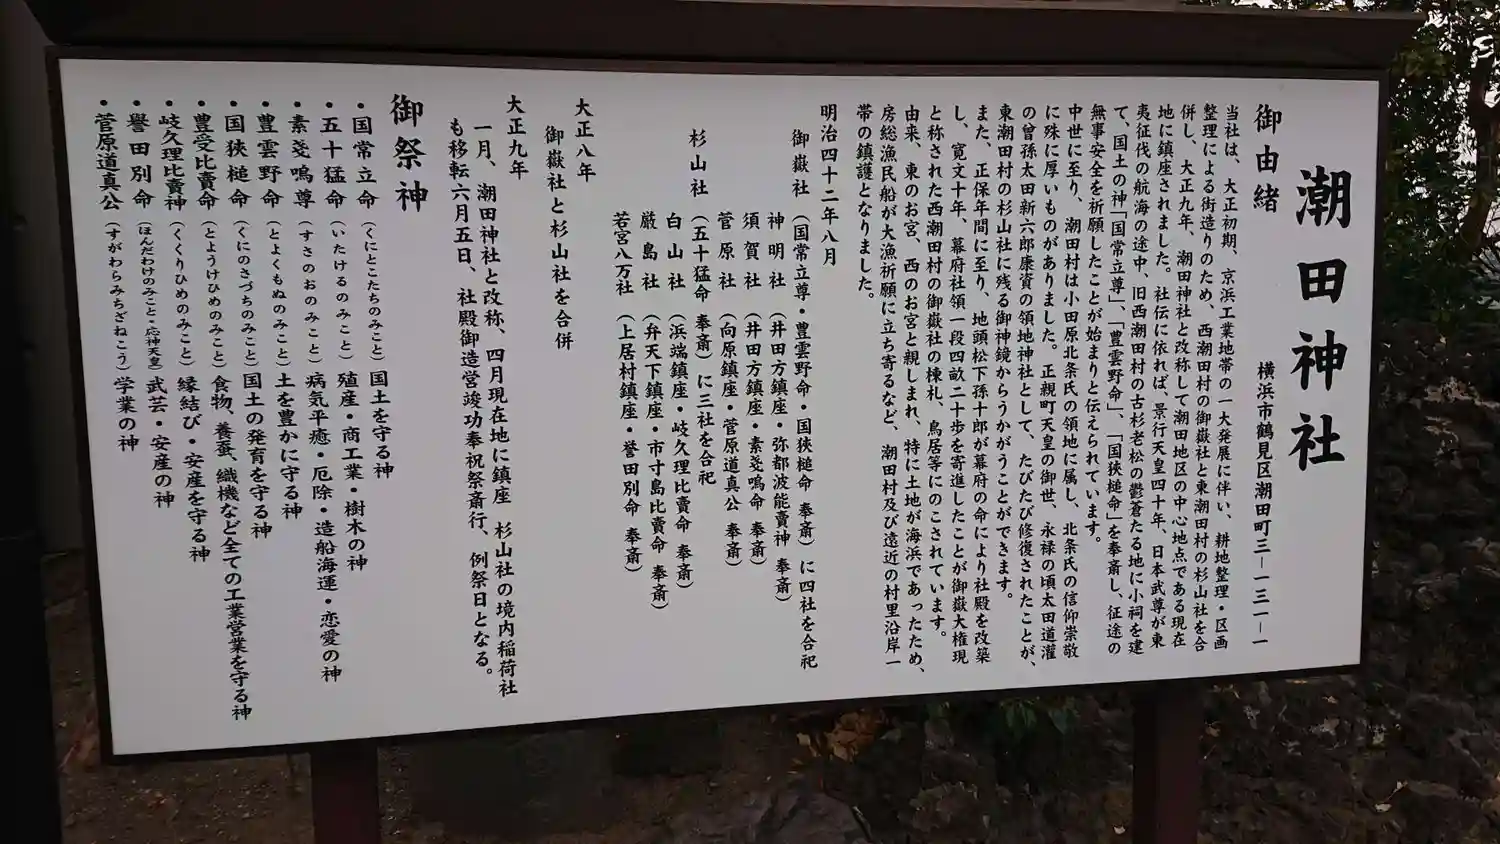 潮田神社
横浜市鶴見区潮田町三ー一三一ー一
御由緒
当社は、大正初期、京浜工業地帯の一大発展に伴い、耕地整理・区画
整理による街造りのため、西潮田村の御嶽社と東潮田村の杉山社を合
併し、大正九年、潮田神社と改称して潮田地区の中心地点である現在
地に鎮座されました。社伝に依れば、景行天皇四十年、日本武尊が東
夷征伐の航海の途中、旧西潮田村の古杉老松の鬱蒼たる地に小祠を建
て、国土の神「国常立尊」、「豊雲野命」、「国狭槌命」を奉斎し、征途の
無事安全を祈願したことが始まりと伝えられています。
中世に至り、潮田村は小田原北条氏の領地に属し、北条氏の信仰崇敬
に殊に厚いものがありました。正親町天皇の御世、永禄の頃太田道灌
の曾孫太田新六郎康資の領地神社として、たびたび修復されたことが、
東潮田村の杉山社に残る御神鏡からうかがうことができます。
また、正保年間に至り、地頭松下孫十郎が幕府の命により社殿を改築
し、寛文十年、幕府社領一段四畝二十歩を寄進したことが御嶽大権現
と称された西潮田村の御嶽社の棟札、鳥居等にのこされています。
由来、東のお宮、西のお宮と親しまれ、特に土地が海浜であったため、
房総漁民船が大漁祈願に立ち寄るなど、潮田村及び遠近の村里沿岸一
帯の鎮護となりました。
明治四十二年八月
御嶽社（国常立尊・豊雲野命・国狭槌命 奉斎）に四社を合祀
神明社（井田方鎮座・弥都波能賣神 奉斎）
須賀社（井田方鎮座・素戔嗚命 奉斎）
菅原社（向原鎮座・菅原道真公 奉斎）
杉山社（五十猛命 奉斎）に三社を合祀
白山社（浜端鎮座・岐久理比賣命 奉斎）
厳島社（弁天下鎮座・市寸島比賣命 奉斎）
若宮八万社（上居村鎮座・誉田別命 奉斎）
大正八年
御嶽社と杉山社を合併
大正九年
一月、潮田神社と改称、四月現在地に鎮座 杉山社の境内稲荷社
も移転 六月五日、社殿御造営竣功奉祝祭斎行、例祭日となる。
御祭神
・国常立命（くにとこたちのみこと）国土を守る神
・五十猛命（いたけるのみこと）殖産・商工業・樹木の神
・素戔嗚尊（すさのおのみこと）病気平癒・厄除・造船海運・恋愛の神
・豊雲野命（とよくもぬのみこと）土を豊かに守る神
・国狭槌命（くにのさづちのみこと）国土の発育を守る神
・豊受比賣命（とようけひめのみこと）食物、養蚕、織機など全ての工業営業を守る神
・岐久理比賣神（くくりひめのみこと）縁結び・安産を守る神
・譽田別命（ほんだわけのみこと・応神天皇）武芸・安産の神
・菅原道真公（すがわらみちざねこう）学業の神